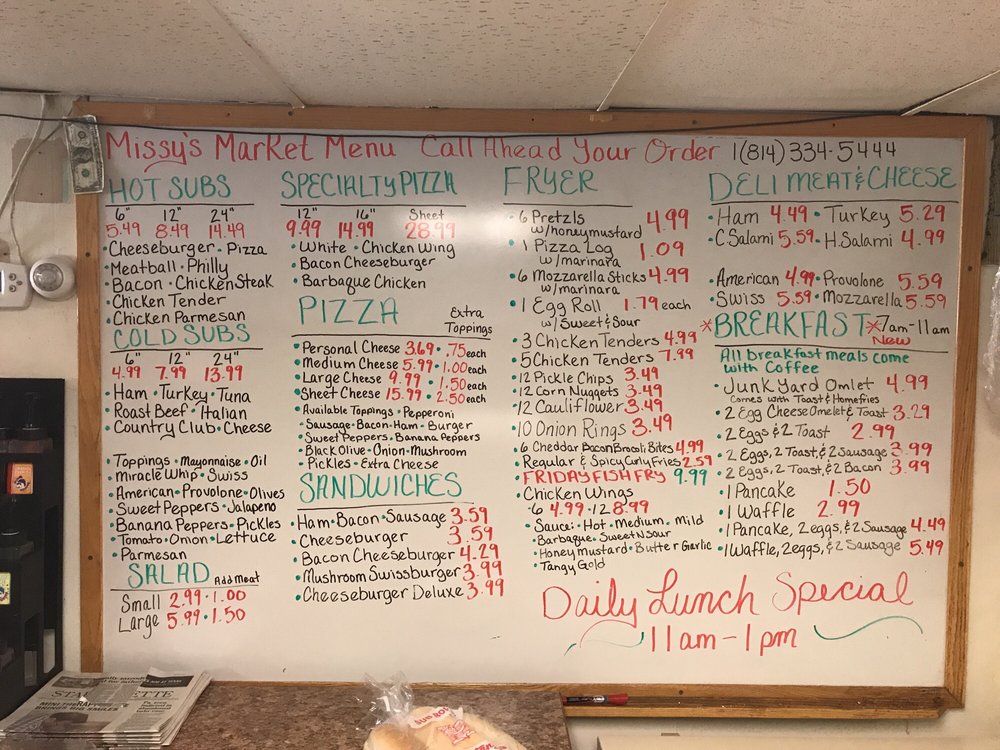 Missy's Market Menu Call Ahead Your Order 1(814)334-5444
HOT SUBS
6" 12" 24"
5.49 8.49 14.49
•Cheeseburger • Pizza
•Meatball • Philly
•Bacon • Chicken Steak
•Chicken Tender
•Chicken Parmesan
COLD SUBS
6" 12" 24"
4.99 7.99 13.99
•Ham • Turkey • Tuna
•Roast Beef • Italian
•Country Club • Cheese
•Toppings • Mayonnaise • Oil
•Miracle Whip • Swiss
•American • Provolone • Olives
•Sweet Peppers • Jalapeno
•Banana Peppers • Pickles
•Tomato • Onion • Lettuce
•Parmesan
SALAD Add Meat
Small 2.99 • 1.00
Large 5.99 • 1.50
SPECIALTY PIZZA
12" 16" Sheet
9.99 14.99 28.99
•White • Chicken Wing
•Bacon Cheeseburger
•Barbaque Chicken
PIZZA Extra Toppings
•Personal Cheese 3.69 • .75 each
•Medium Cheese 5.99 • 1.00 each
•Large Cheese 9.99 • 1.50 each
•Sheet Cheese 15.99 • 2.50 each
•Available Toppings • Pepperoni
•Sausage • Bacon • Ham • Burger
•Sweet Peppers • Banana Peppers
•Black Olive • Onion • Mushroom
•Pickles • Extra Cheese
SANDWICHES
•Ham • Bacon • Sausage 3.59
•Cheeseburger 3.59
•Bacon Cheeseburger 4.29
•Mushroom Swissburger 3.99
•Cheeseburger Deluxe 3.99
FRYER
•6 Pretzls 4.99
w/honeymustard
•1 Pizza Log 1.09
w/marinara
•6 Mozzarella Sticks 4.99
w/marinara
•1 Egg Roll 1.79 each
w/Sweet & Sour
•3 Chicken Tenders 4.99
•5 Chicken Tenders 7.99
•12 Pickle Chips 3.49
•12 Corn Nuggets 3.49
•12 Cauliflower 3.49
•10 Onion Rings 3.49
•6 Cheddar Bacon Brocoli Bites 4.99
•Regular & Spicy Curly Fries 2.59
•FRIDAY FISH FRY 9.99
•Chicken Wings
•6 4.99 • 12 8.99
•Sauce: Hot • Medium • Mild
•Barbaque • Sweet N Sour
•Honey mustard • Butter Garlic
•Tangy Gold
DELI MEAT & CHEESE
•Ham 4.49 • Turkey 5.29
•C.Salami 5.59 • H.Salami 4.99
•American 4.99 • Provolone 5.59
•Swiss 5.59 • Mozzarella 5.59
*BREAKFAST* 7am-11am
New
All breakfast meals come
with Coffee
•Junk Yard Omlet 4.99
Comes with Toast & Homefries
•2 Egg Cheese Omelet & Toast 3.29
•2 Eggs & 2 Toast 2.99
•2 Eggs, 2 Toast, & 2 Sausage 3.99
•2 Eggs, 2 Toast, & 2 Bacon 3.99
•1 Pancake 1.50
•1 Waffle 2.99
•1 Pancake, 2 eggs, & 2 Sausage 4.49
•1 Waffle, 2 eggs, & 2 Sausage 5.49
Daily Lunch Special
11am-1pm